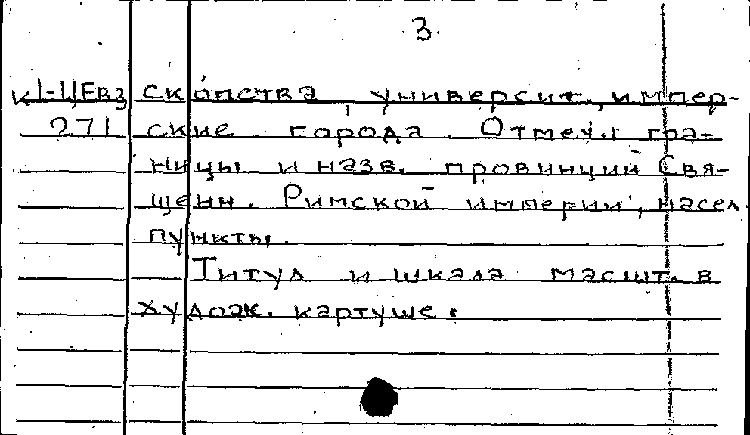 3.
К1-ЦЕвз скопства, университ., импер-
271 ские города. Отмеч. гра-
ницы и назв. провинций Свя-
щенн. Римской империи, насел.
пункты.
Титул и шкала масшт. в
худож. картуше.